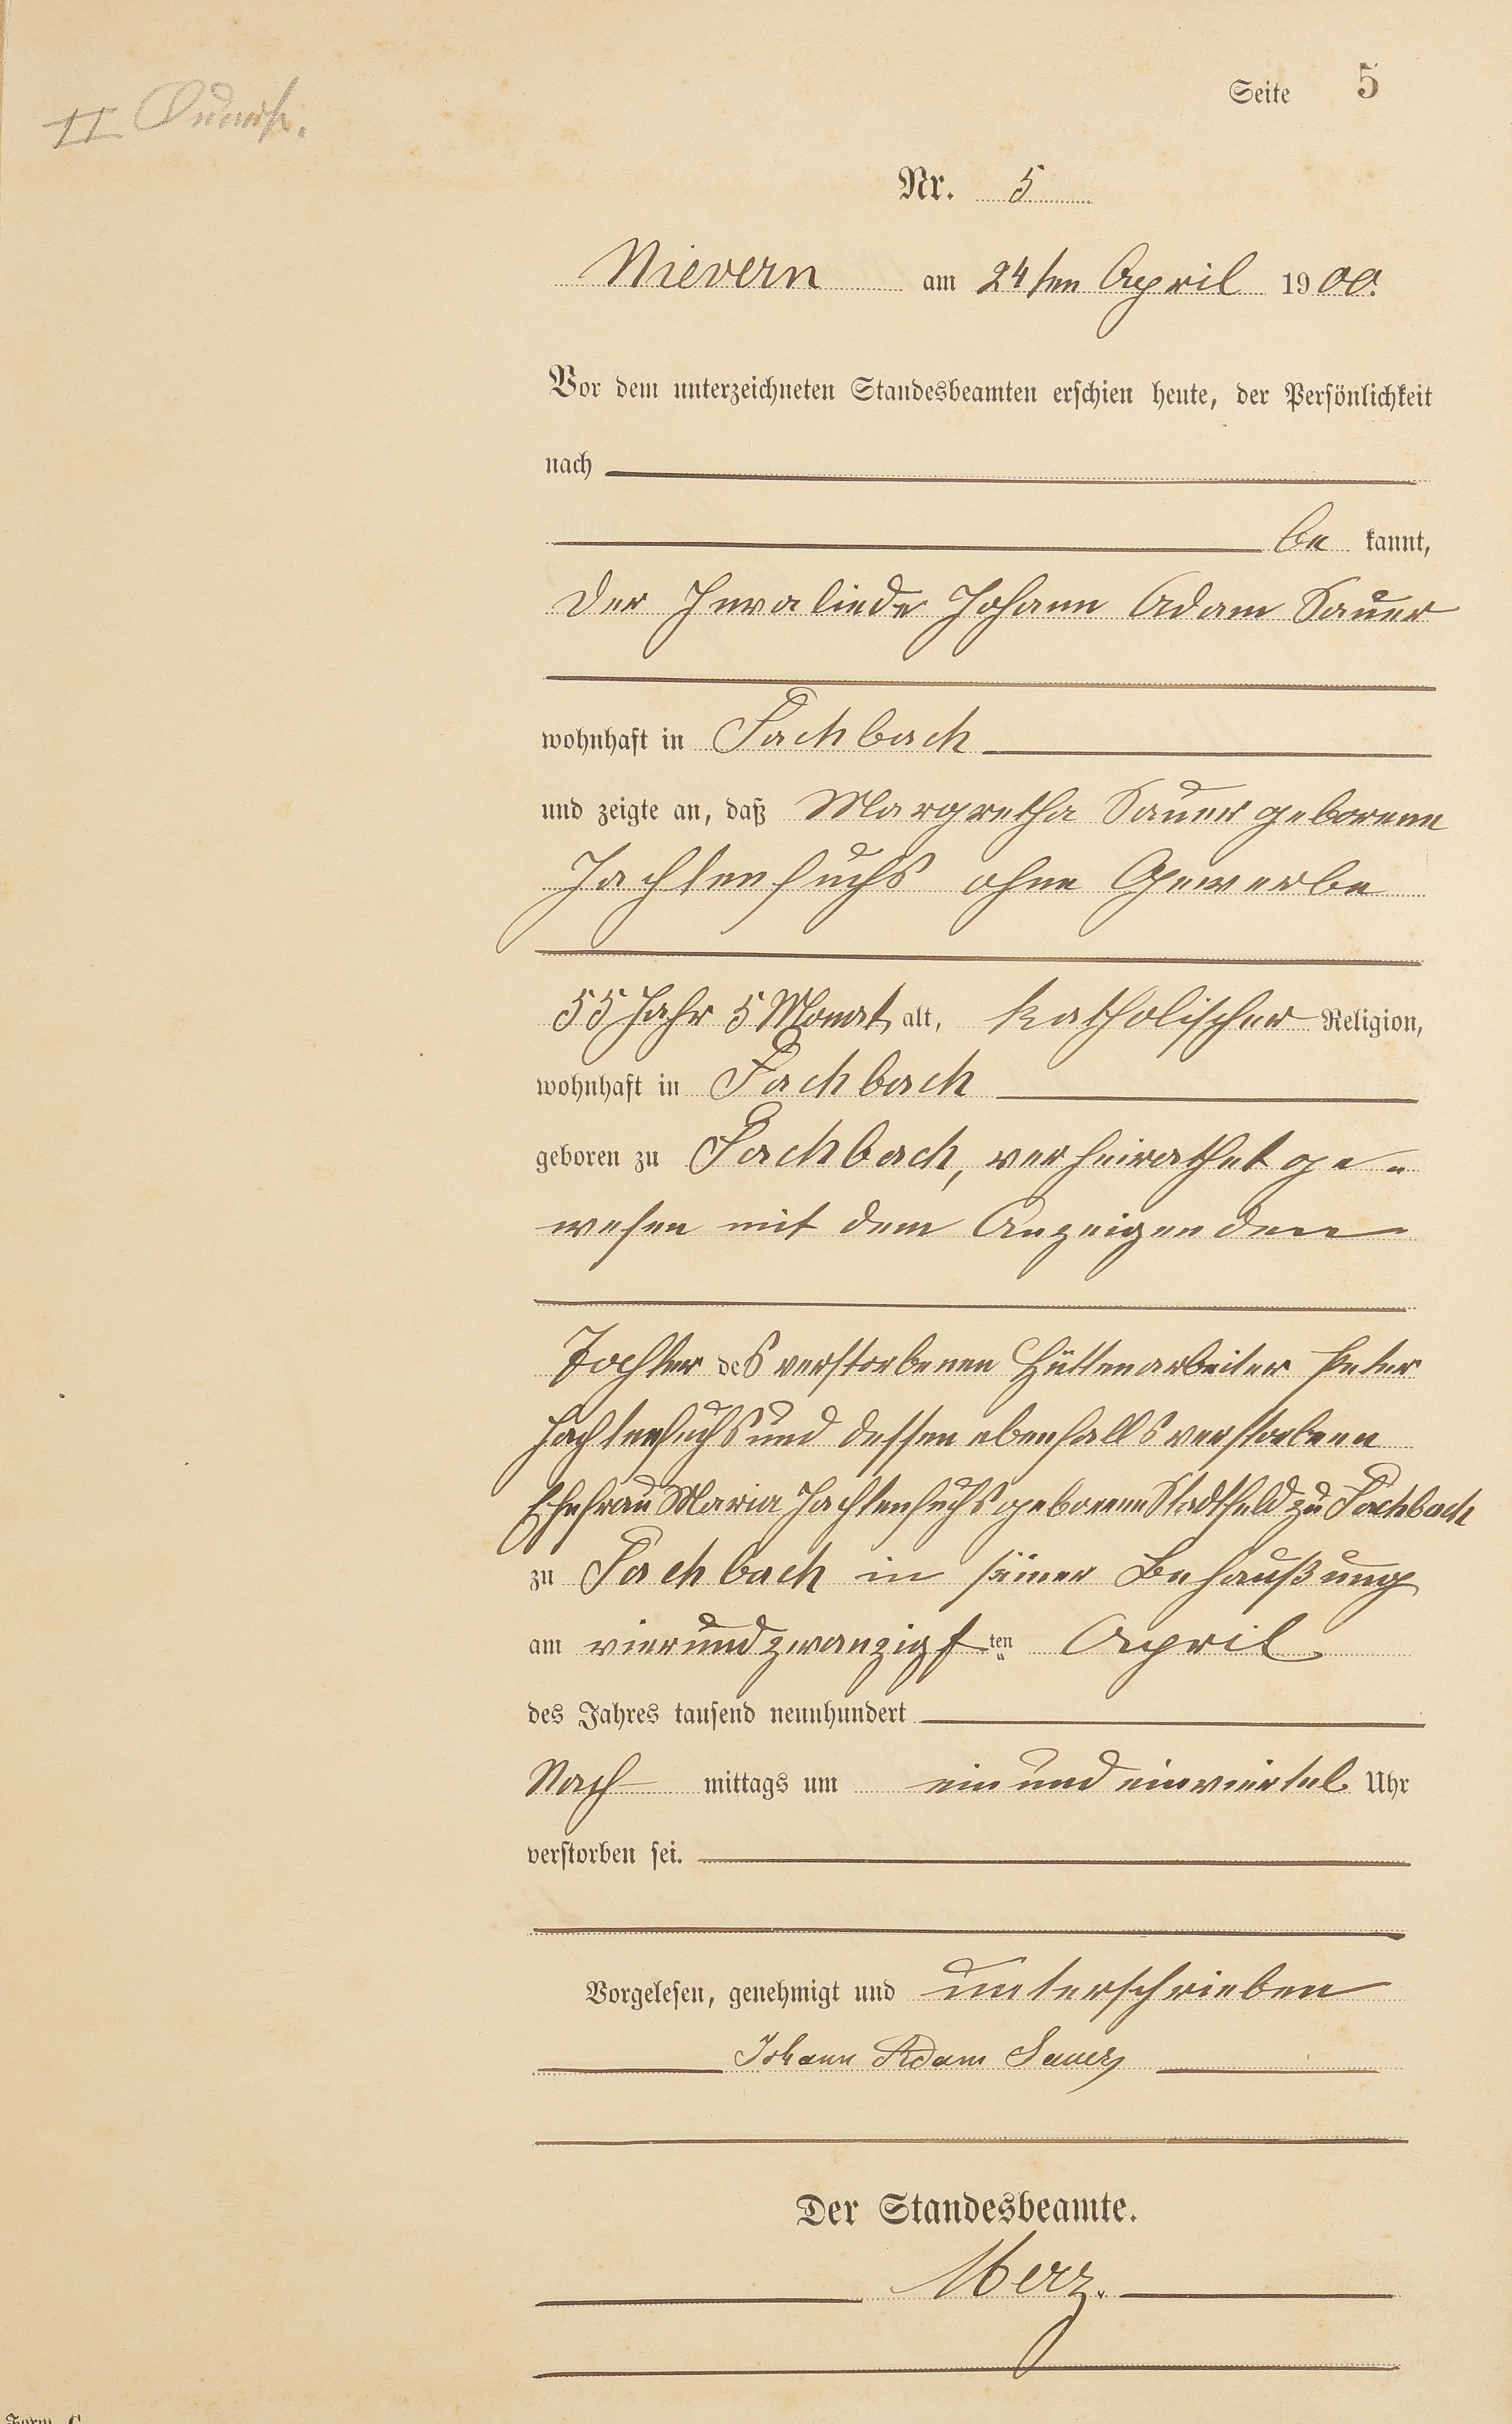 Seite 5
II Quart.
Nr. 5
Nievern am 24ten April 1900.
Vor dem unterzeichneten Standesbeamten erschien heute, der Persönlichkeit
nach
be kannt,
der Invaliede Johann Adam Sauer
wohnhaft in Fachbach
und zeigte an, daß Margretha Sauer geborene
Jachtenfuchs ohne Gewerbe
55 Jahr 5 Monat alt, katholischer Religion,
wohnhaft in Fachbach
geboren zu Fachbach, verheirathet ge-
wesen mit dem Anzeigenden
Tochter des verstorbenen Hüttenarbeiter Peter
Jachtenfuchs und dessen ebenfalls verstorbene
Ehefrau Maria Jachtenfuchs geborene Stadtfeld zu Fachbach
zu Fachbach in seiner Behaußung
am vierundzwanzigsten April
des Jahres tausend neunhundert
Nach mittags um ein und einviertel Uhr
verstorben sei.
Vorgelesen, genehmigt und unterschrieben
Johann Adam Sauer
Der Standesbeamte.
Merz.